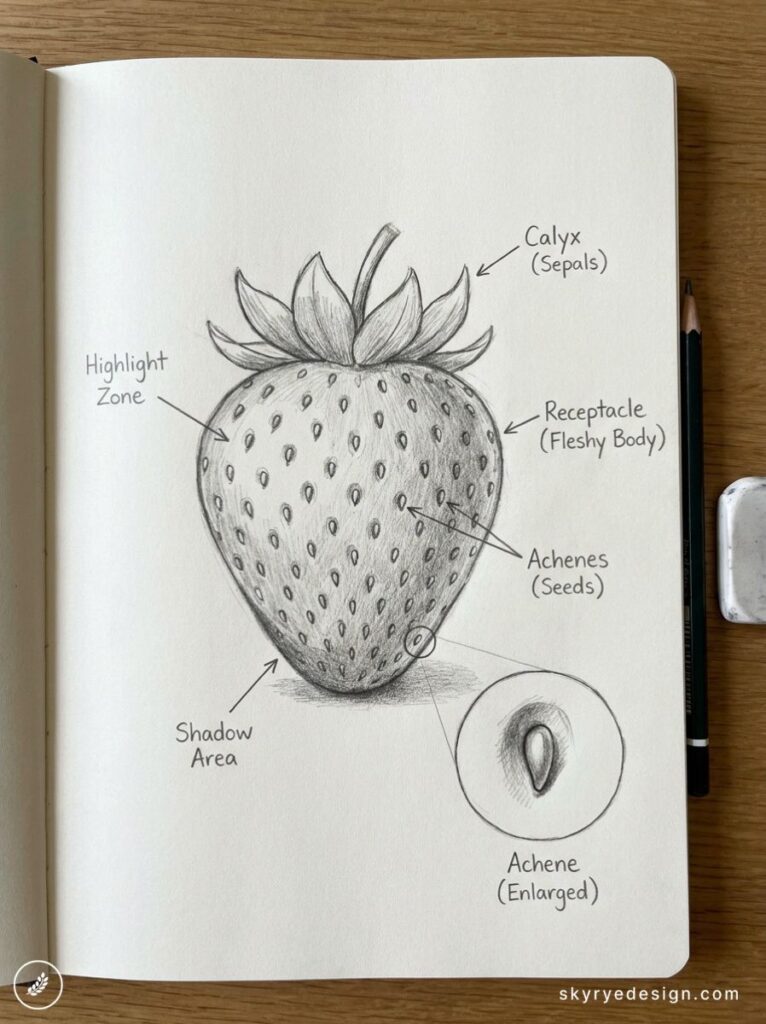 Calyx
(Sepals)
Highlight
Zone
Receptacle
(Fleshy Body)
Achenes
(Seeds)
Shadow
Area
Achene
(Enlarged)
skyryedesign.com